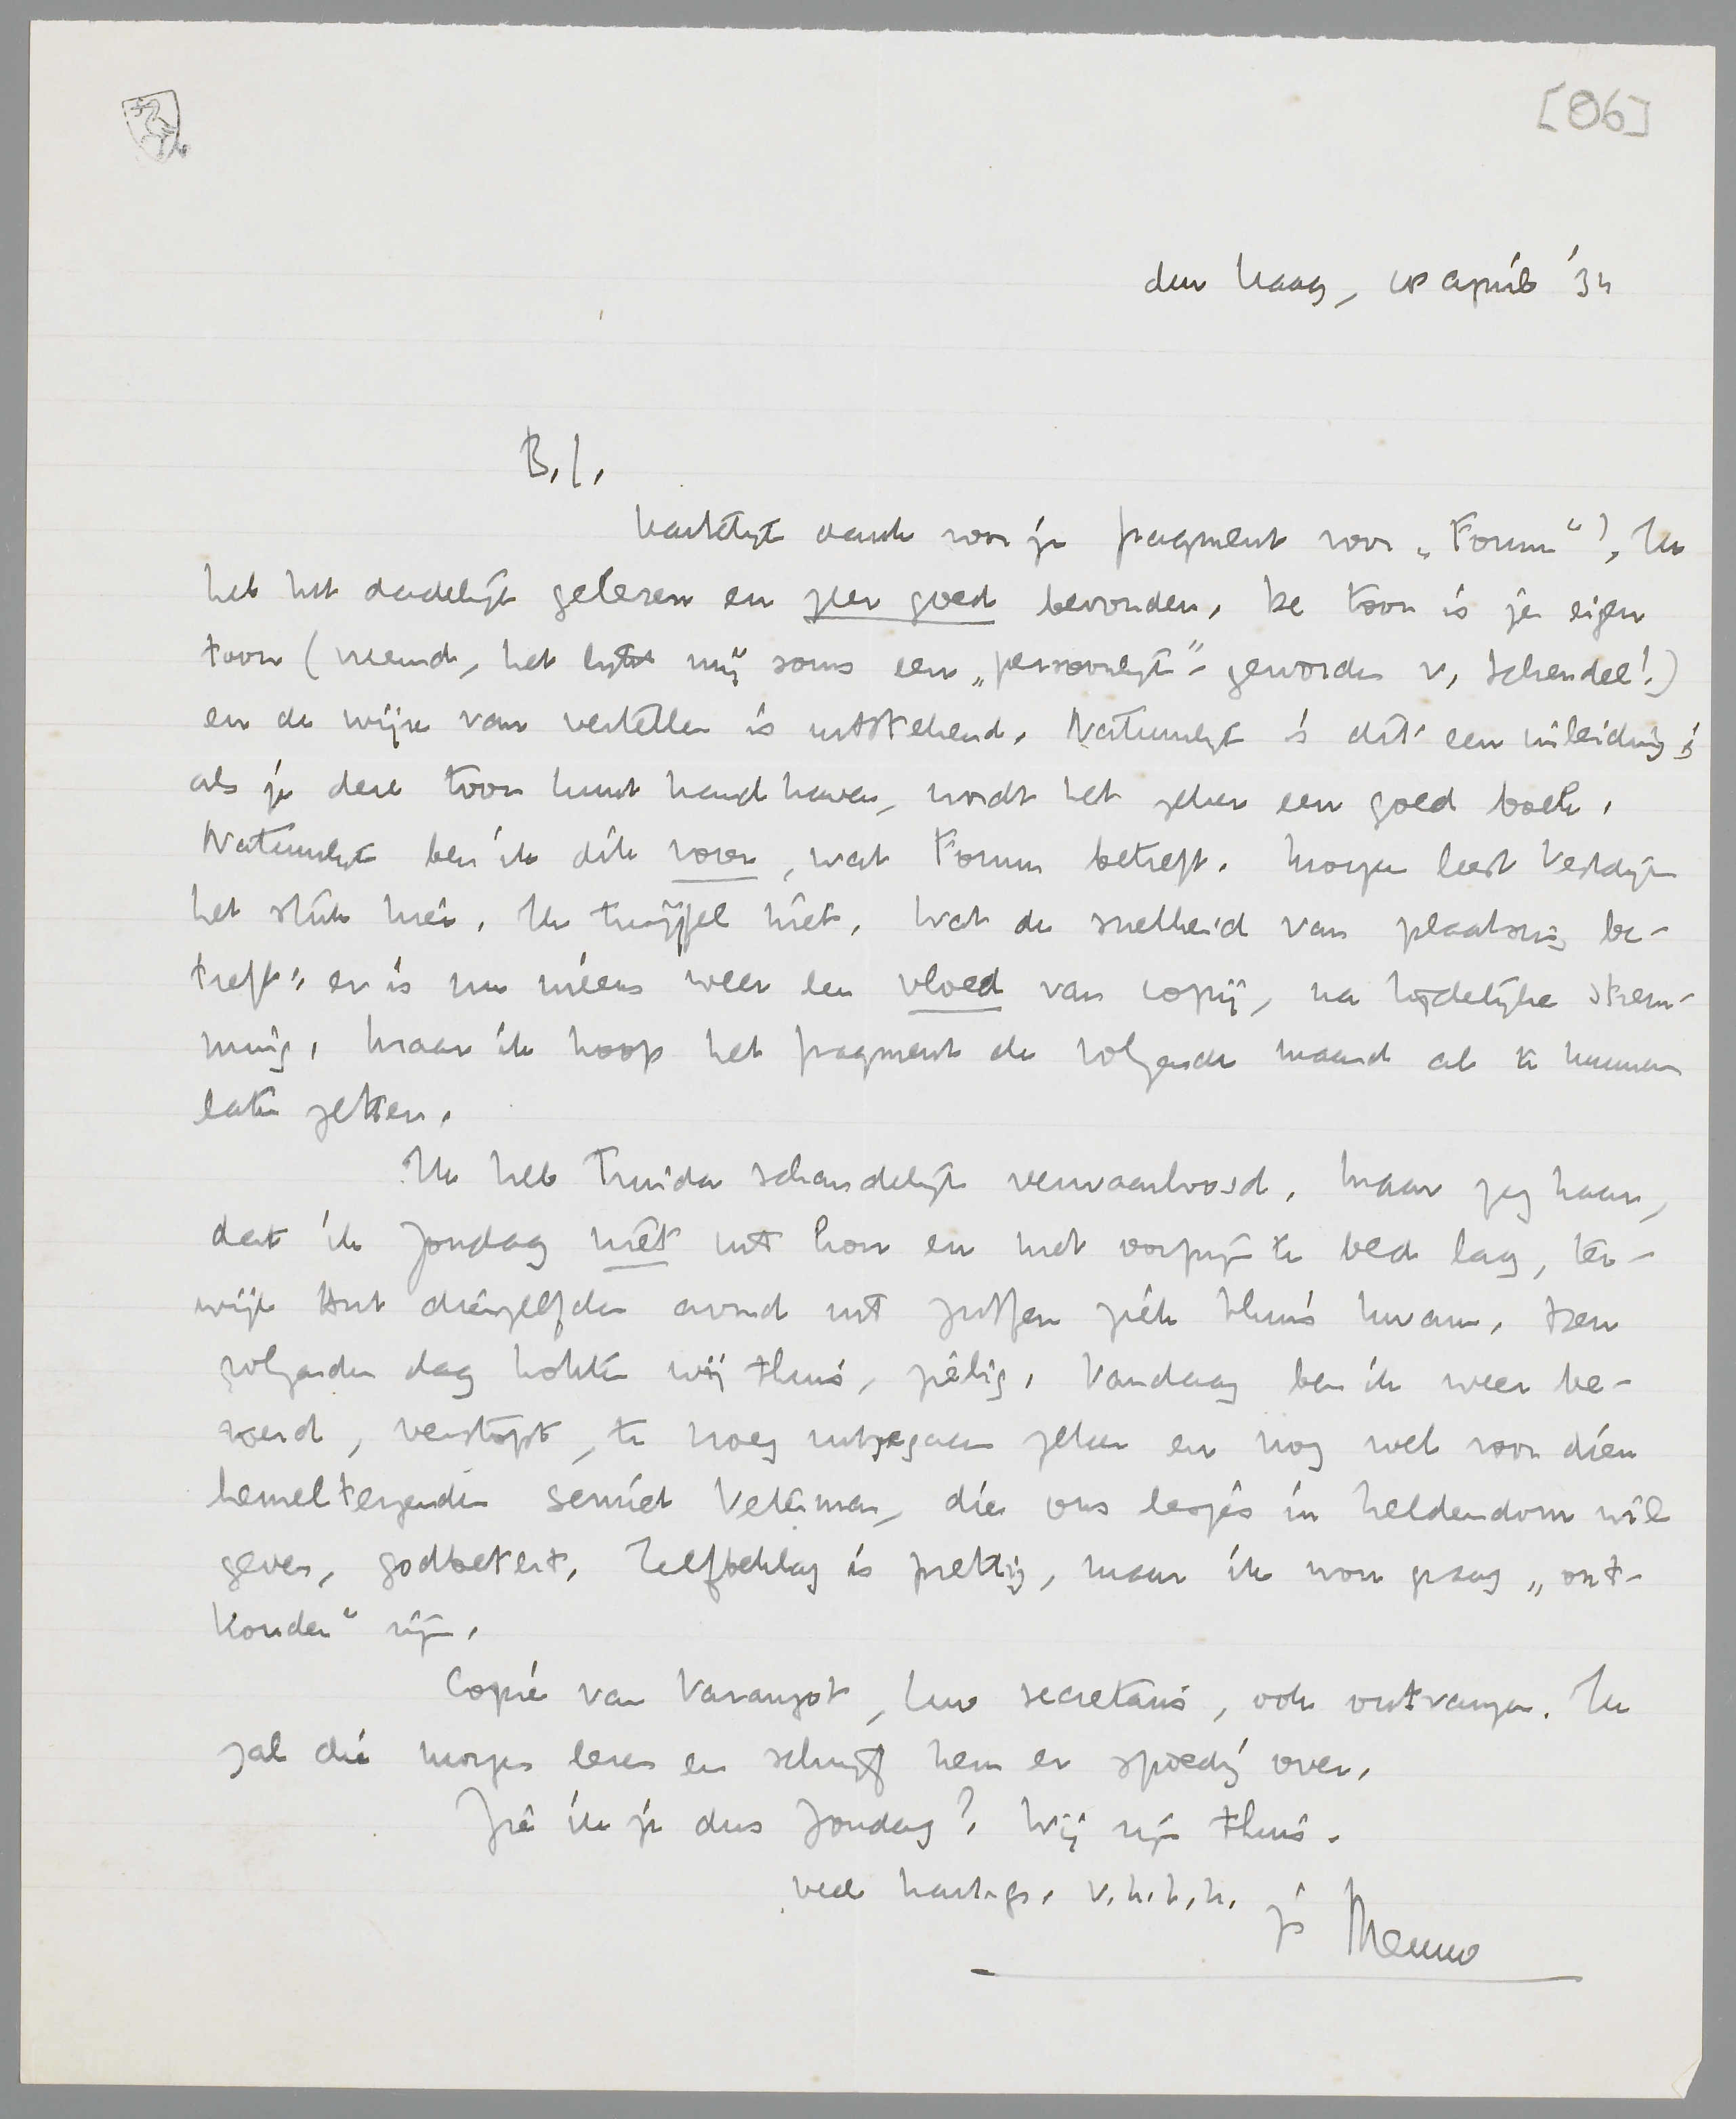 [86]
den Haag, 18 April '34
B.J.
Hartelijk dank voor je fragment voor „Forum"! Ik
heb het dadelijk gelezen en zeer goed bevonden. De toon is je eigen
toon (vreemd, het lijkt mij soms een „persoonlijk" geworden v. Schendel!)
en de wijze van vertellen is uitstekend. Natuurlijk is dit een inleiding;
als je deze toon kunt handhaven, wordt het zeker een goed boek.
Natuurlijk ben ik dik voor, wat Forum betreft. Morgen leest Vestdijk
het stuk hier. Ik twijfel niet. Wat de snelheid van plaatsing be-
treft: er is nu ineens weer een vloed van copij, na tijdelijke strem-
ming. Maar ik hoop het fragment de volgende maand al te kunnen
laten zetten.
Ik heb Truida schandelijk verwaarloosd. Maar zeg haar,
dat ik Zondag niet uit kon en met oorpijn te bed lag, ter-
wijl Ant dienzelfden avond uit Zutfen ziek thuis kwam. Den
volgenden dag hokten wij thuis, zielig. Vandaag ben ik weer be-
roerd, verstopt, te vroeg uitgegaan zeker en nog wel voor dien
hemeltergenden semiet Veterman, die ons lesjes in heldendom wil
geven, godbetert. Zelfbeklag is prettig, maar ik wou graag „ont-
kouden" zijn.
Copie van Varangot, luw secretaris, ook ontvangen. Ik
zal die morgen lezen en schrijf hem er spoedig over.
Zie ik je dus Zondag? Wij zijn thuis.
veel hart. gr. v.h.t.h. je Menno